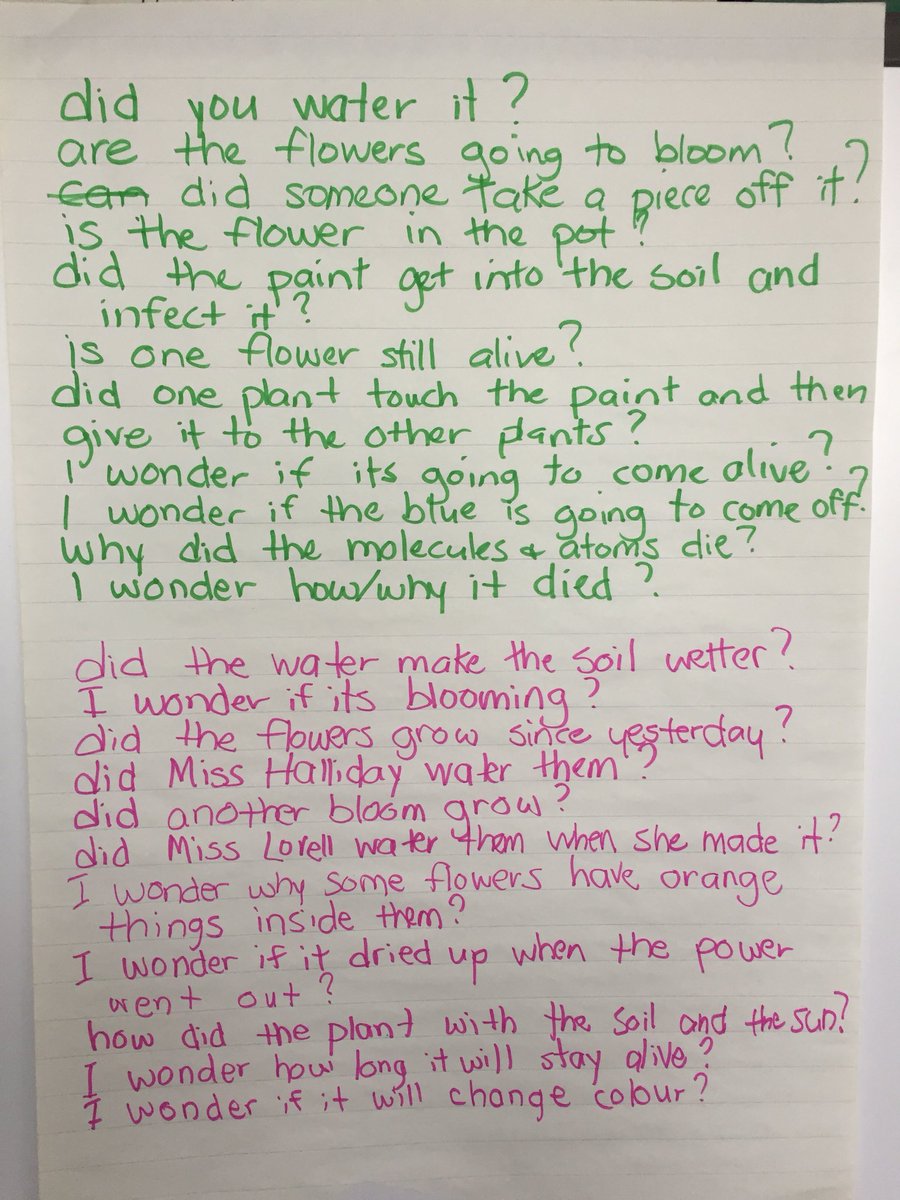 did you water it?
are the flowers going to bloom?
can did someone take a piece off it?
is the flower in the pot?
did the paint get into the soil and
infect it?
is one flower still alive?
did one plant touch the paint and then
give it to the other plants?
I wonder if its going to come alive?
I wonder if the blue is going to come off?
why did the molecules & atoms die?
I wonder how/why it died?
did the water make the soil wetter?
I wonder if its blooming?
did the flowers grow since yesterday?
did Miss Halliday water them?
did another bloom grow?
did Miss Lorell water them when she made it?
I wonder why some flowers have orange
things inside them?
I wonder if it dried up when the power
went out?
how did the plant with the soil and the sun?
I wonder how long it will stay alive?
I wonder if it will change colour?